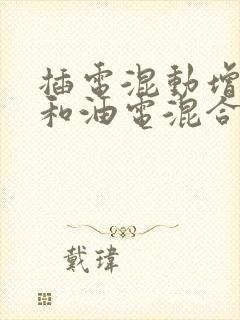 插電混動增
和油電混合
戴瑋